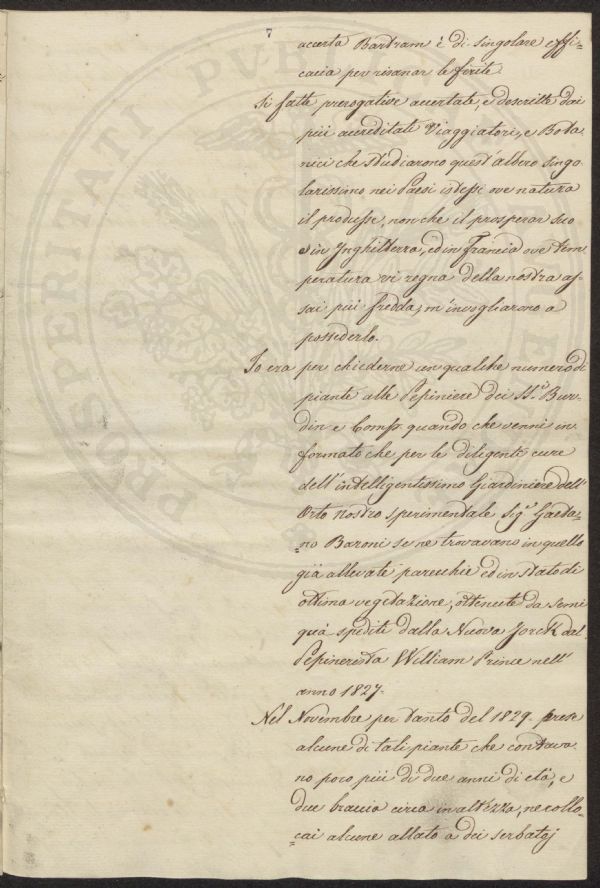 7
accerta Bartram è di singolare effi-
cacia per risanar le ferite.
Si fatte prerogative accertate, e descritte dai
più accreditati Viaggiatori, e Bota-
nici che studiarono quest'albero singo-
larissimo nei Paesi istessi ove natura
il produsse, non che il prosperar suo
in Inghilterra, ed in Francia ove tem-
peratura vi regna della nostra as-
sai più fredda, m'invogliarono a
possederlo.
Io era per chiederne un qualche numero di
piante alle Pepiniere dei SS.i Bur-
din e Comp. quando che venni in-
formato che per le diligenti cure
dell'intelligentissimo Giardiniere dell'
Orto nostro sperimentale Sig.r Gaeta-
=no Baroni se ne trovavano in quello
già allevate parecchie ed in stato di
ottima vegetazione, ottenute da semi
quà spediti dalla Nuova Jorck dal
Pepinerista William Prince nell'
anno 1827.
Nel Novembre per tanto del 1829. presi
alcune di tali piante che contava-
no poco più di due anni di età, e
due braccia circa in altezza, ne collo-
=cai alcune allato a dei serbatoj
PROSPERITATI PUBLICAE